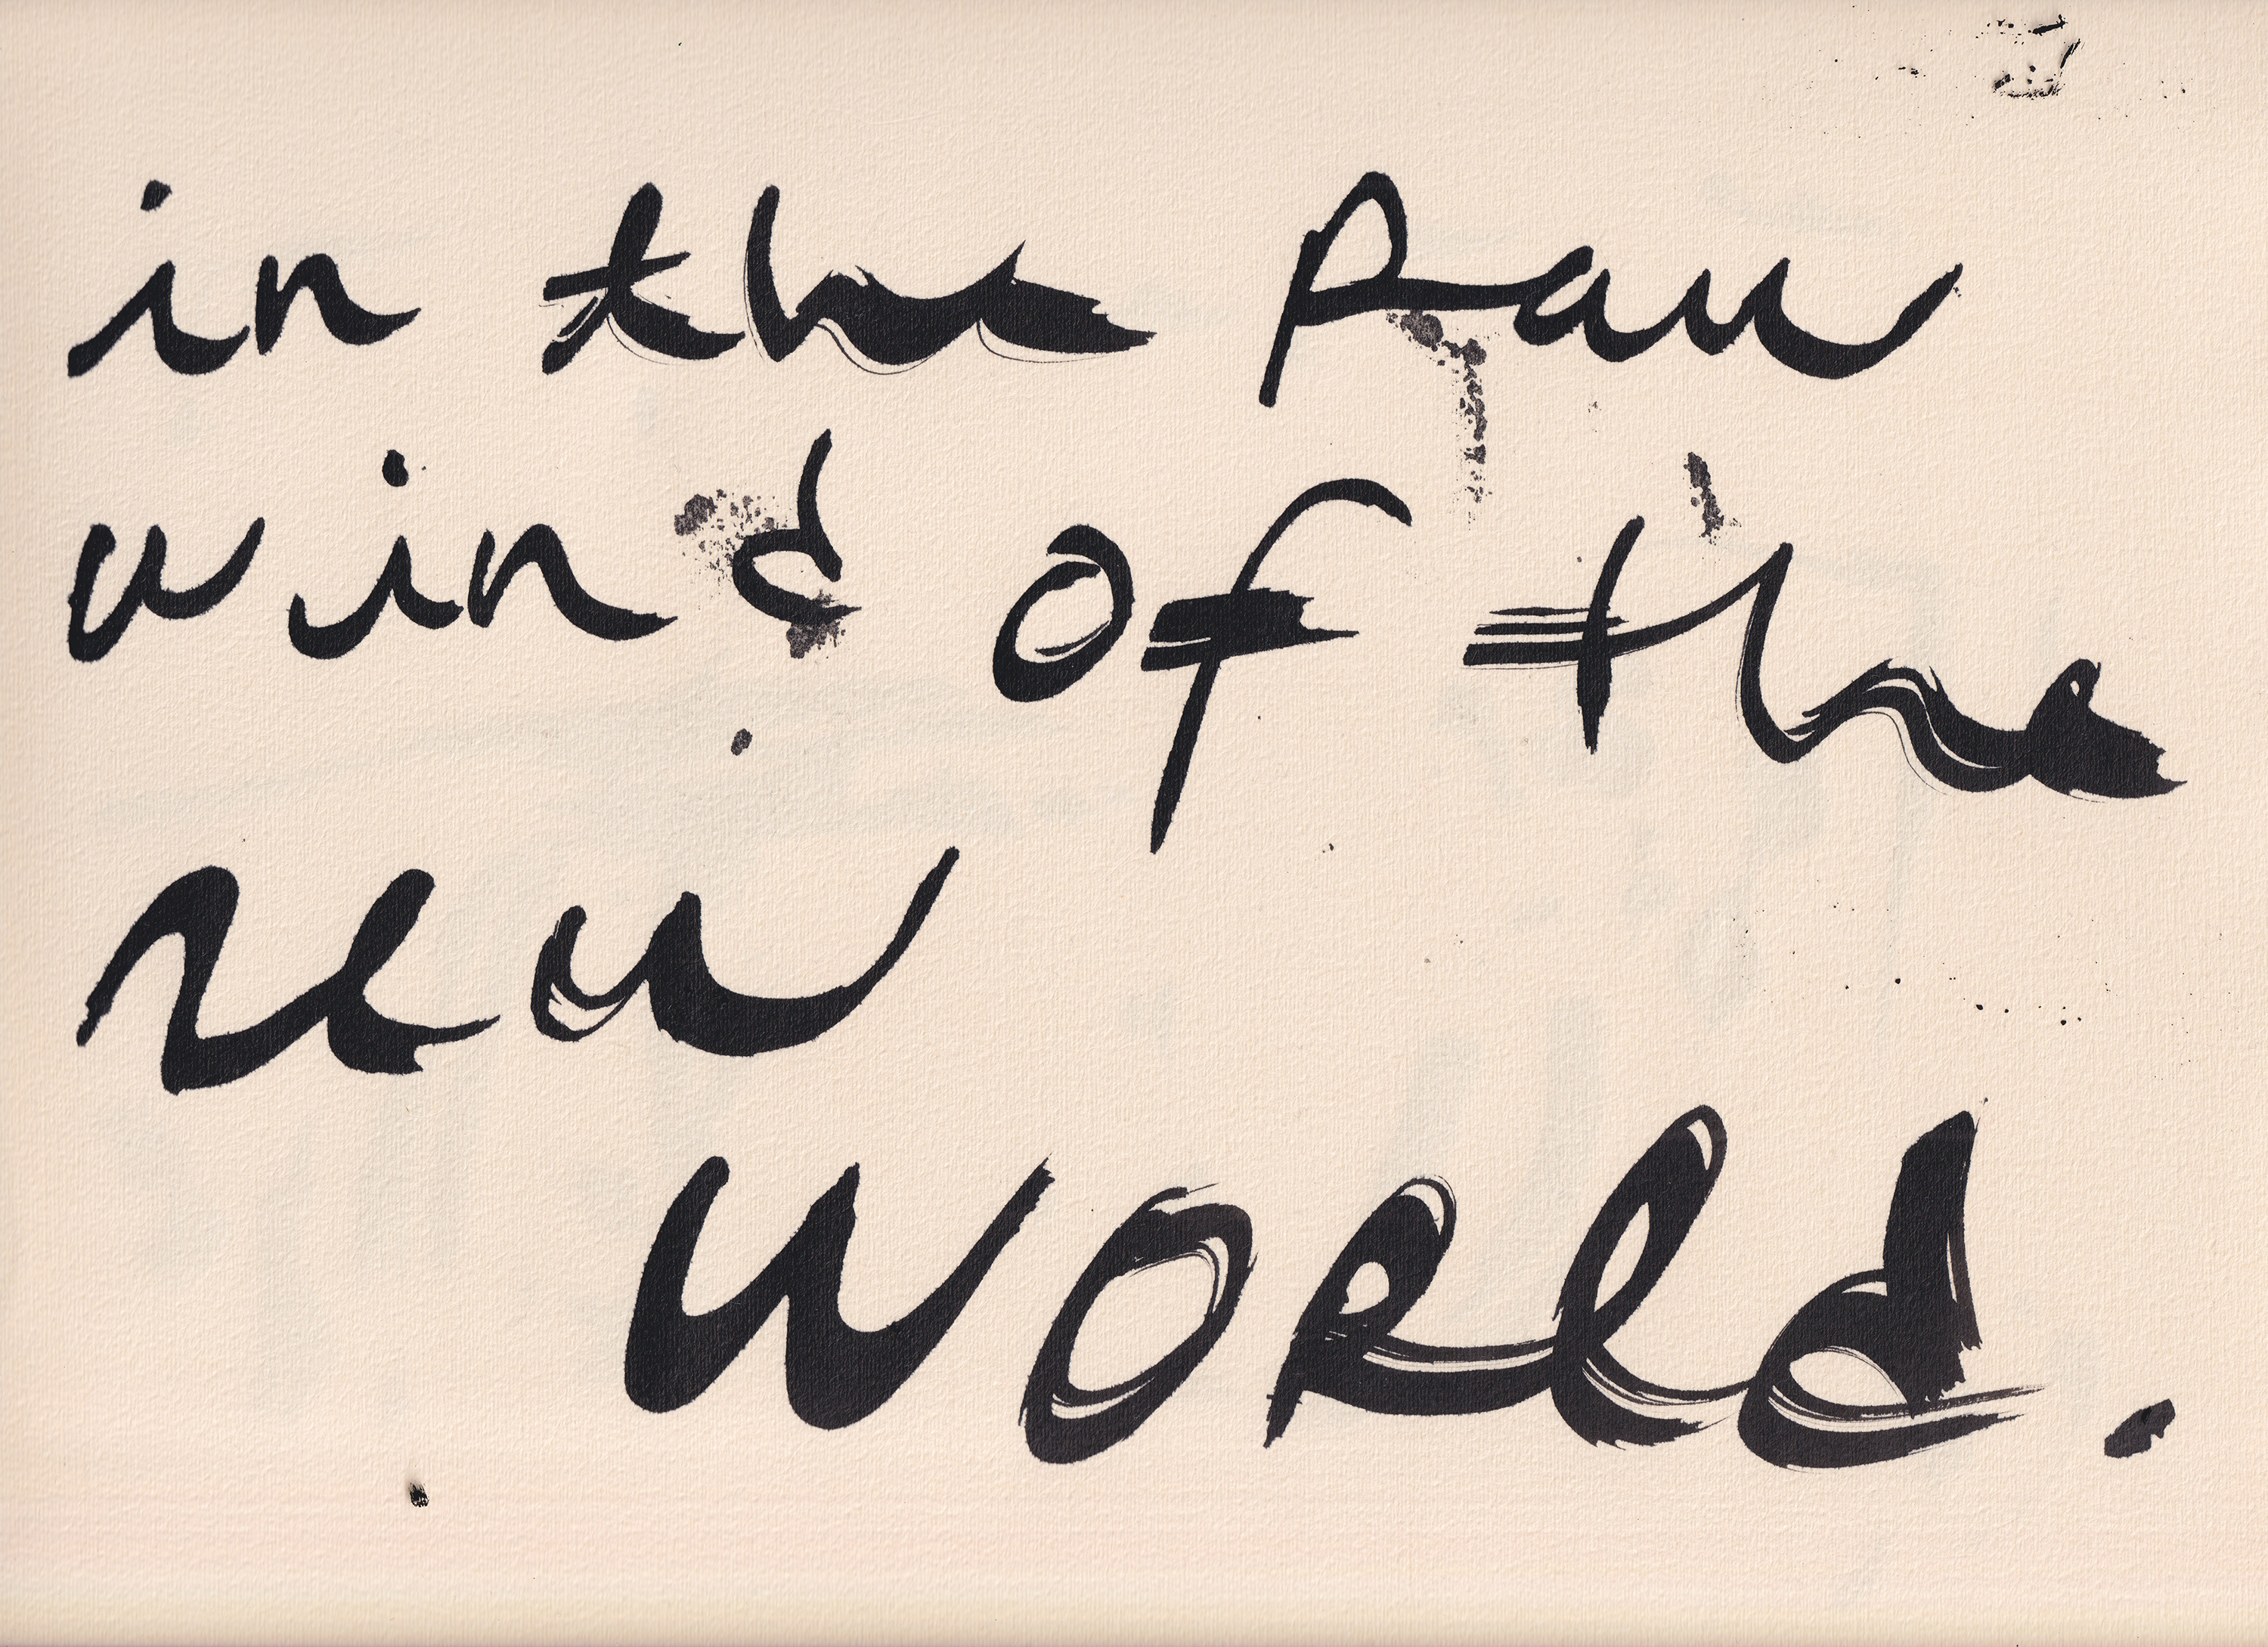 in the Raw
wind of the
new
world.